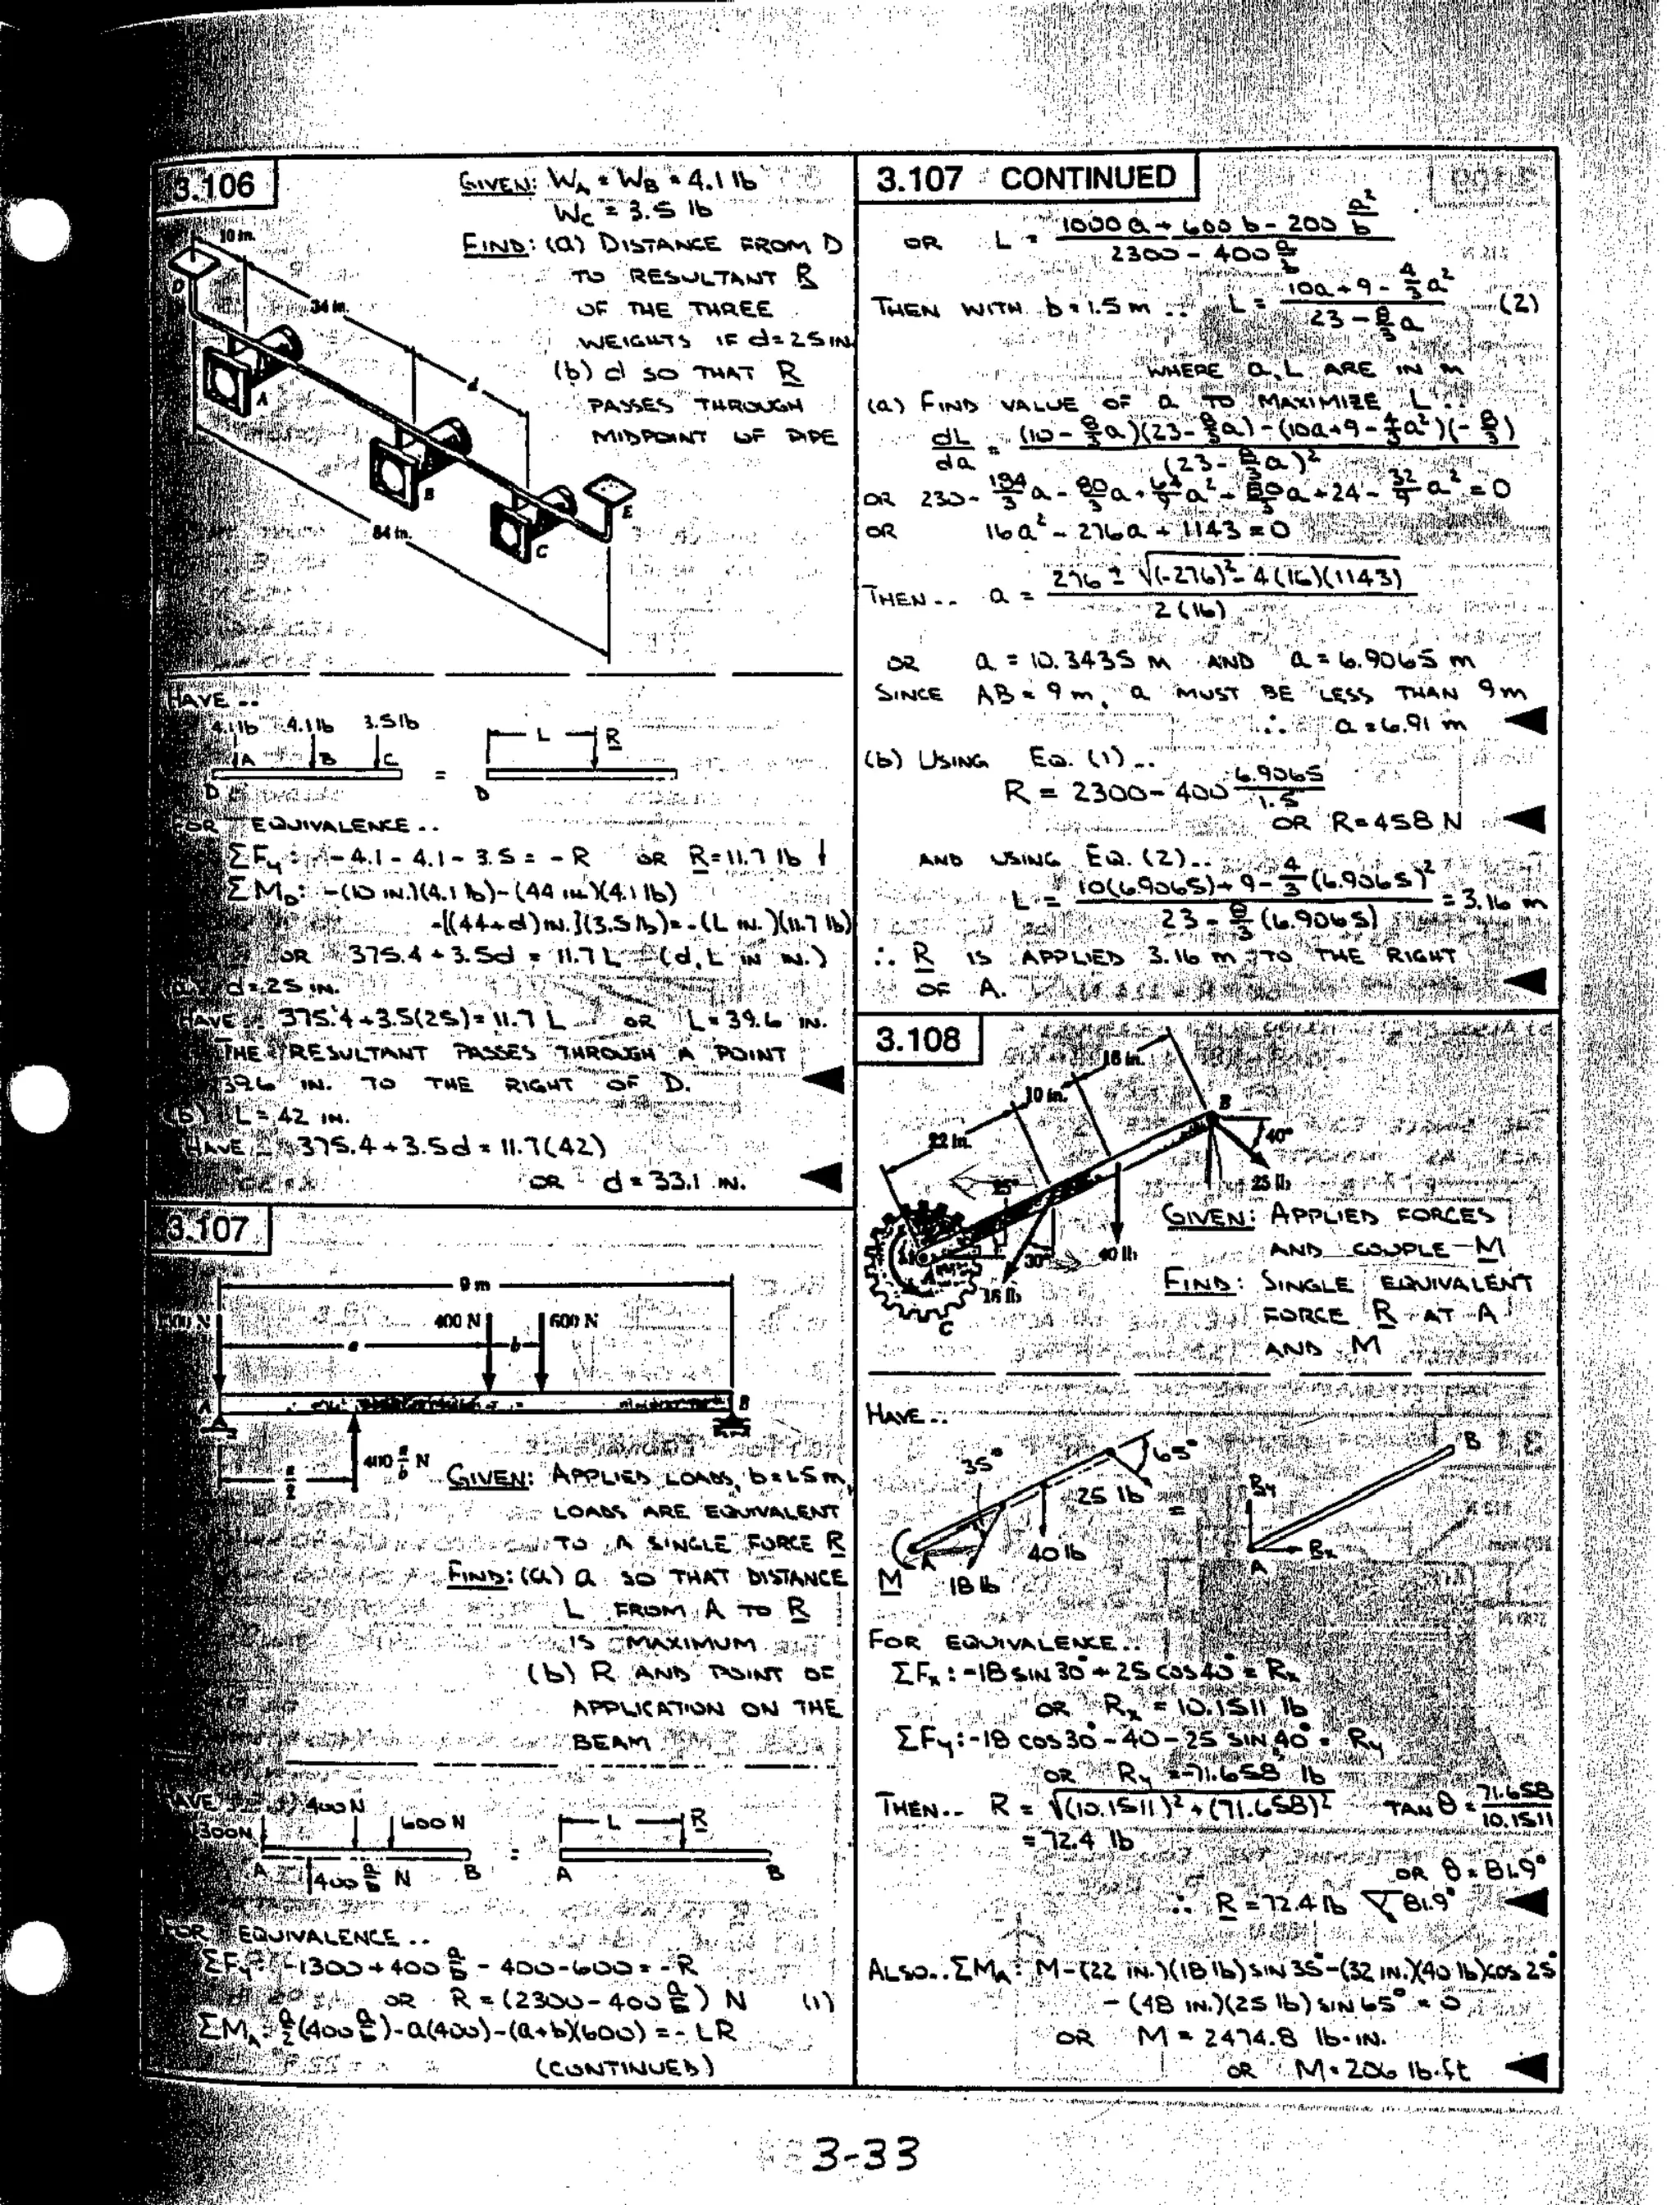 3.106
GIVEN: W_A = W_B = 4.1 lb
W_C = 3.5 lb
FIND: (a) DISTANCE FROM D
TO RESULTANT R
OF THE THREE
WEIGHTS IF d=25 IN.
(b) d SO THAT R
PASSES THROUGH
MIDPOINT OF PIPE
10 in.
D
34 in.
d
A
B
E
84 in.
C
HAVE..
4.1 lb 4.1 lb 3.5 lb
L R
A B C
=
D D
FOR EQUIVALENCE..
ΣF_y: -4.1 - 4.1 - 3.5 = -R OR R = 11.7 lb ↓
ΣM_D: -(10 IN.)(4.1 lb)-(44 IN.)(4.1 lb)
-[(44+d) IN.](3.5 lb) = -(L IN.)(11.7 lb)
OR 375.4 + 3.5d = 11.7 L (d, L IN IN.)
d = 25 IN.
HAVE.. 375.4 + 3.5(25) = 11.7 L OR L = 39.6 IN.
THE RESULTANT PASSES THROUGH A POINT
39.6 IN. TO THE RIGHT OF D.
(b) L = 42 IN.
HAVE.. 375.4 + 3.5d = 11.7(42)
OR d = 33.1 IN.
3.107
9 m
400 N 600 N
a b
A B
400 a/b N
a/2
GIVEN: APPLIED LOADS, b = 1.5 m,
LOADS ARE EQUIVALENT
TO A SINGLE FORCE R
FIND: (a) a SO THAT DISTANCE
L FROM A TO R
IS MAXIMUM
(b) R AND POINT OF
APPLICATION ON THE
BEAM
HAVE.. 400 N
1300N 600 N
L R
A B = A B
400 a/b N
FOR EQUIVALENCE..
ΣF_y: -1300 + 400 a/b - 400 - 600 = -R
OR R = (2300 - 400 a/b) N (1)
ΣM_A: a/2 (400 a/b) - a(400) - (a+b)(600) = -LR
(CONTINUED)
3.107 CONTINUED
OR L = (1000a + 600b - 200 a²/b) / (2300 - 400 a/b)
THEN WITH b = 1.5 m .. L = (10a + 9 - 4/3 a²) / (23 - 8/3 a) (2)
WHERE a, L ARE IN m
(a) FIND VALUE OF a TO MAXIMIZE L..
dL/da = ((10 - 8/3 a)(23 - 8/3 a) - (10a + 9 - 4/3 a²)(-8/3)) / (23 - 8/3 a)²
OR 230 - 184/3 a - 80/3 a + 64/9 a² + 80/3 a + 24 - 32/9 a² = 0
OR 16a² - 276a + 1143 = 0
THEN.. a = (276 ± √((-276)² - 4(16)(1143))) / 2(16)
OR a = 10.3435 m AND a = 6.9065 m
SINCE AB = 9 m, a MUST BE LESS THAN 9 m
∴ a = 6.91 m
(b) USING EQ. (1)..
R = 2300 - 400 6.9065/1.5
OR R = 458 N
AND USING EQ. (2)..
L = (10(6.9065) + 9 - 4/3 (6.9065)²) / (23 - 8/3 (6.9065)) = 3.16 m
∴ R IS APPLIED 3.16 m TO THE RIGHT
OF A.
3.108
16 in.
10 in.
22 in.
B
40°
25°
25 lb
40 lb
30°
A
18 lb
C
GIVEN: APPLIED FORCES
AND COUPLE M
FIND: SINGLE EQUIVALENT
FORCE R AT A
AND M
HAVE..
35° 65° B
25 lb R_y
=
A 40 lb R_x
M 18 lb A
FOR EQUIVALENCE..
ΣF_x: -18 SIN 30° + 25 COS 40° = R_x
OR R_x = 10.1511 lb
ΣF_y: -18 COS 30° - 40 - 25 SIN 40° = R_y
OR R_y = -71.658 lb
THEN.. R = √((10.1511)² + (71.658)²) TAN θ = 71.658/10.1511
= 72.4 lb
OR θ = 81.9°
∴ R = 72.4 lb 81.9°
ALSO.. ΣM_A: M - (22 IN.)(18 lb) SIN 35° - (32 IN.)(40 lb) COS 25°
- (48 IN.)(25 lb) SIN 65° = 0
OR M = 2474.8 lb·IN.
OR M = 206 lb·ft
3-33